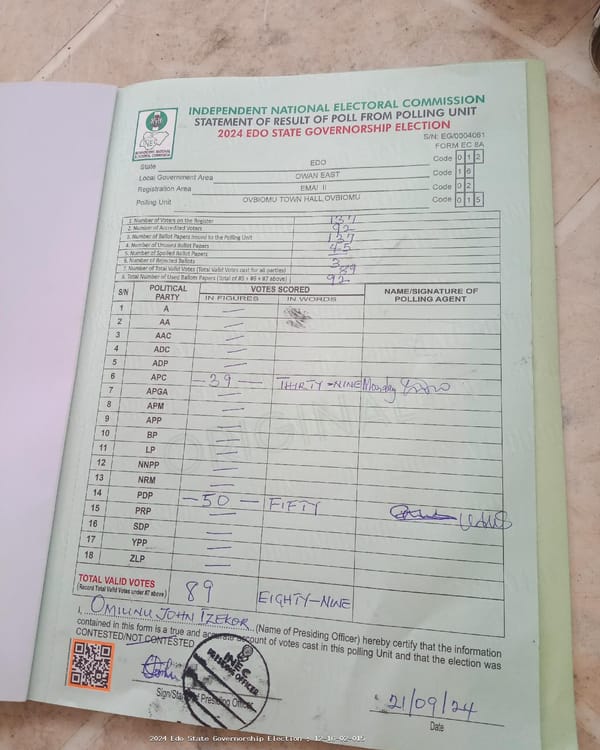 INDEPENDENT NATIONAL ELECTORAL COMMISSION
STATEMENT OF RESULT OF POLL FROM POLLING UNIT
2024 EDO STATE GOVERNORSHIP ELECTION
S/N: EG/0004061
FORM EC 8A
State EDO Code 0 1 2
Local Government Area OWAN EAST Code 1 6
Registration Area EMAI II Code 0 2
Polling Unit OVBIOMU TOWN HALL, OVBIOMU Code 0 1 5
1. Number of Voters on the Register 137
2. Number of Accredited Voters 92
3. Number of Ballot Papers Issued to the Polling Unit 137
4. Number of Unused Ballot Papers 45
5. Number of Spoiled Ballot Papers —
6. Number of Rejected Ballots 3
7. Number of Total Valid Votes (Total Valid Votes cast for all parties) 89
8. Total Number of Used Ballots Papers (Total of #5 + #6 + #7 above) 92
S/N POLITICAL PARTY VOTES SCORED NAME/SIGNATURE OF POLLING AGENT
IN FIGURES IN WORDS
1 A —
2 AA —
3 AAC —
4 ADC —
5 ADP —
6 APC —39— THIRTY-NINE
7 APGA —
8 APM —
9 APP —
10 BP —
11 LP —
12 NNPP —
13 NRM —
14 PDP —50— FIFTY
15 PRP —
16 SDP —
17 YPP —
18 ZLP —
TOTAL VALID VOTES 89 EIGHTY-NINE
(Record Total Valid Votes under #7 above)
I, OMIUNU JOHN IZEKOR (Name of Presiding Officer) hereby certify that the information
contained in this form is a true and accurate account of votes cast in this polling Unit and that the election was
CONTESTED/NOT CONTESTED
INEC
PRESIDING OFFICER
Sign/Stamp of Presiding Officer
21/09/24
Date
2024 Edo State Governorship Election : 12_16_02_015